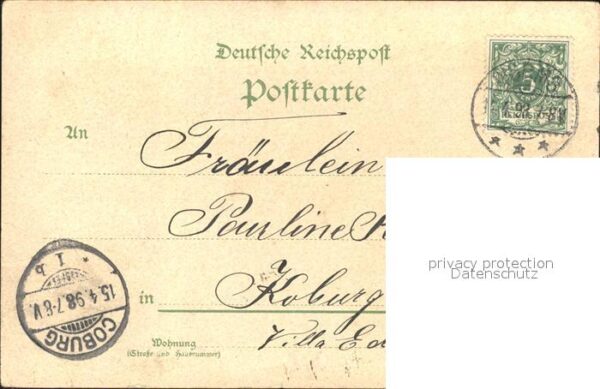 Deutsche Reichspost
Postkarte
An
Fräulein
Pauline
privacy protection
Datenschutz
in Koburg
Wohnung
(Straße und Hausnummer)
Villa
5
REICHSPOST
COBURG
15.4.98.7-8V.
* 1 b *